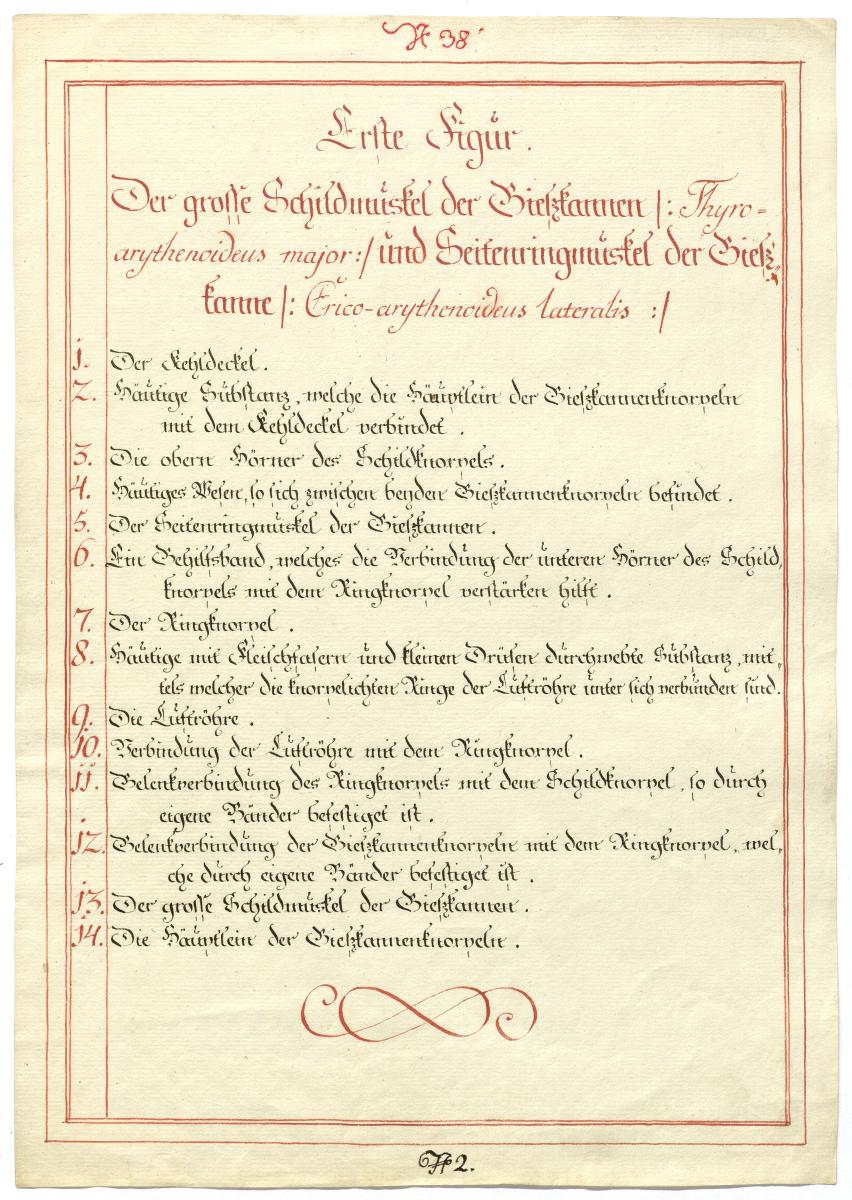 N 38
Erste Figur.
Der grosse Schildmuskel der Gieſzkannen |: Thyro-
arythenoideus major :| und Seitenringmuskel der Gieſz,
kanne |: Crico-arythenoideus lateralis :|
1. Der Kehldeckel.
2. Häutige Substanz, welche die Häuptlein der Gieſzkannenknorpeln
mit dem Kehldeckel verbindet.
3. Die obern Hörner des Schildknorpels.
4. Häutiges Wesen, so sich zwischen beyden Gieſzkannenknorpeln befindet.
5. Der Seitenringmuskel der Gieſzkannen.
6. Ein Behilfsband, welches die Verbindung der unteren Hörner des Schild,
knorpels mit dem Ringknorpel verstärken hilft.
7. Der Ringknorpel.
8. Häutige mit Fleischfasern und kleinen Drüsen durchwebte Substanz, mit,
tels welcher die knorpelichten Ringe der Luftröhre unter sich verbunden sind.
9. Die Luftröhre.
10. Verbindung der Luftröhre mit dem Ringknorpel.
11. Gelenkverbindung des Ringknorpels mit dem Schildknorpel, so durch
eigene Bänder befestiget ist.
12. Gelenkverbindung der Gieſzkannenknorpeln mit dem Ringknorpel, wel,
che durch eigene Bänder befestiget ist.
13. Der grosse Schildmuskel der Gieſzkannen.
14. Die Häuptlein der Gieſzkannenknorpeln.
N 2.